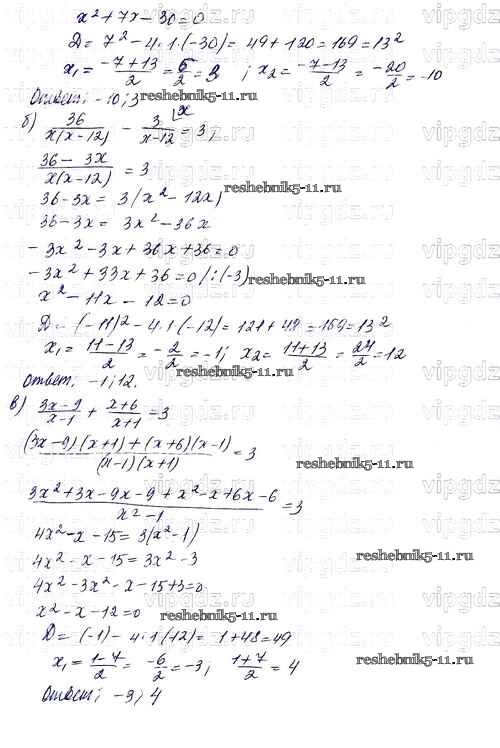 x² + 7x - 30 = 0
D = 7² - 4·1·(-30) = 49 + 120 = 169 = 13²
x₁ = (-7+13)/2 = 6/2 = 3 ; x₂ = (-7-13)/2 = -20/2 = -10
Ответ: -10; 3
б) 36/(x(x-12)) - 3/(x-12) \x = 3,
(36 - 3x)/(x(x-12)) = 3
reshebnik5-11.ru
36-3x = 3(x² - 12x)
36-3x = 3x² - 36x
- 3x² - 3x + 36x + 36 = 0
- 3x² + 33x + 36 = 0 /:(-3)
reshebnik5-11.ru
x² - 11x - 12 = 0
D = (-11)² - 4·1·(-12) = 121 + 48 = 169 = 13²
x₁ = (11-13)/2 = -2/2 = -1; x₂ = (11+13)/2 = 24/2 = 12
reshebnik5-11.ru
Ответ: -1; 12.
в) (3x-9)/(x-1) + (x+6)/(x+1) = 3
((3x-9)(x+1) + (x+6)(x-1))/((x-1)(x+1)) = 3
reshebnik5-11.ru
(3x²+3x-9x-9+x²-x+6x-6)/(x²-1) = 3
4x² - x - 15 = 3(x²-1)
4x² - x - 15 = 3x² - 3
reshebnik5-11.ru
4x² - 3x² - x - 15 + 3 = 0
x² - x - 12 = 0
reshebnik5-11.ru
D = (-1) - 4·1(-12) = 1 + 48 = 49
x₁ = (1-7)/2 = -6/2 = -3, (1+7)/2 = 4
reshebnik5-11.ru
Ответ: -3; 4
vipgdz.ru